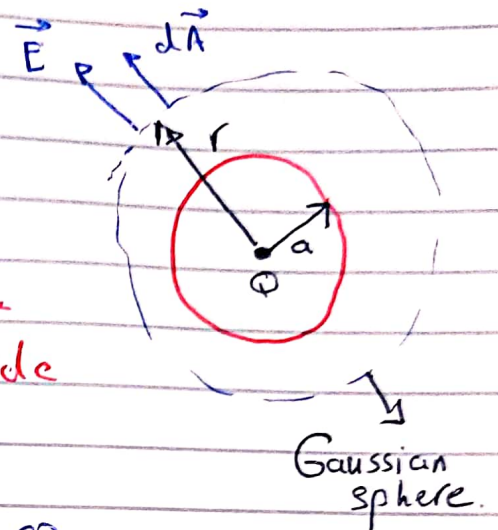 E
dA
r
a
Q
de
Gaussian
sphere.